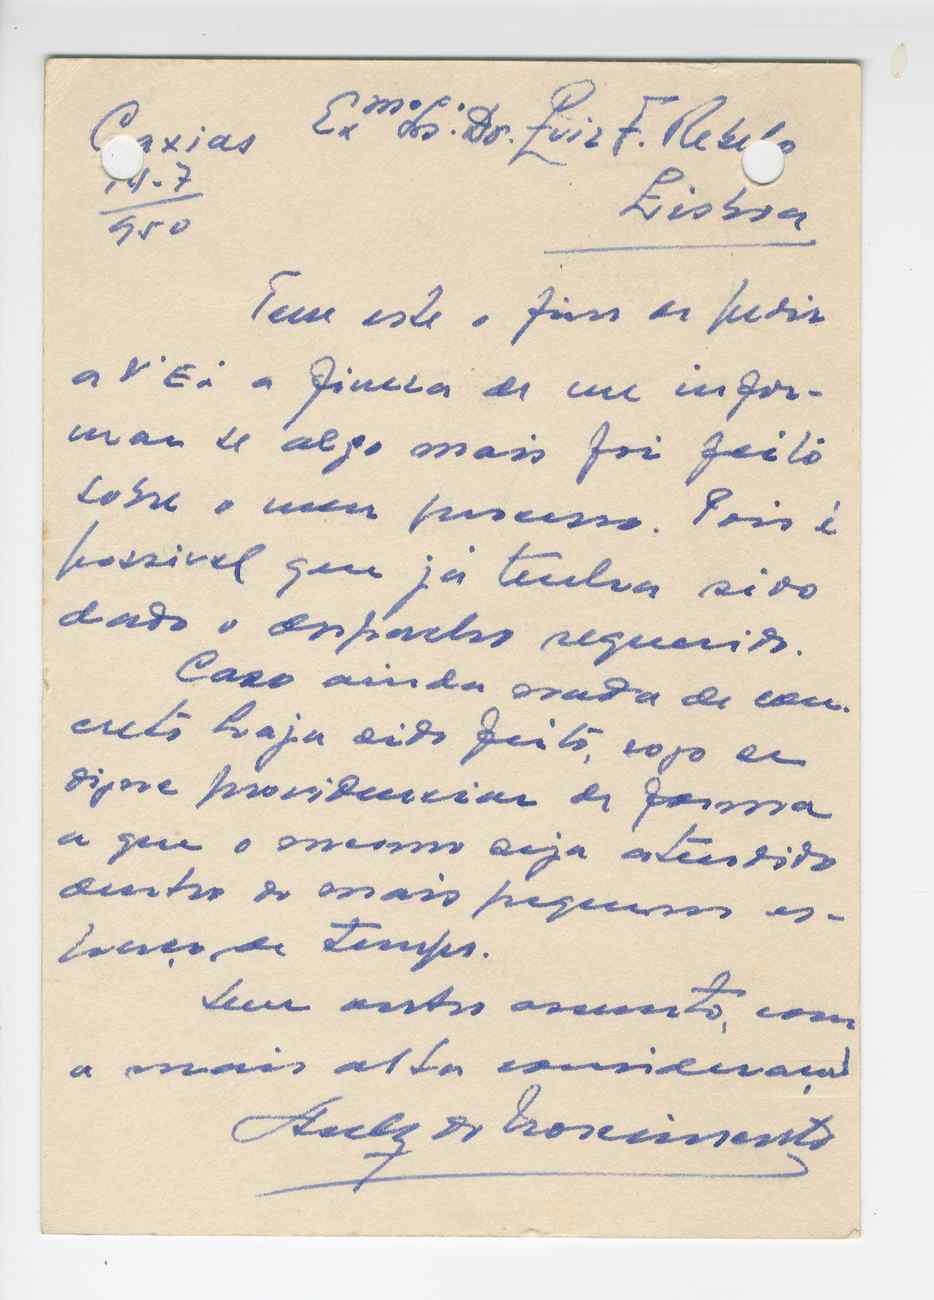 Caxias Exmo. Sr. Dr. Luiz F. Rebelo
14-7
950
Lisboa
Tem este o fim de pedir
a V. Ex a fineza de me infor-
mar se algo mais foi feito
sobre o meu processo. Pois é
possivel que já tenha sido
dado o despacho requerido.
Caso ainda nada de con-
creto haja sido feito, rogo se
digne providenciar de forma
a que o mesmo seja atendido
dentro do mais pequeno es-
paço de tempo.
Sem outro assunto, com
a mais alta consideração
do Nascimento